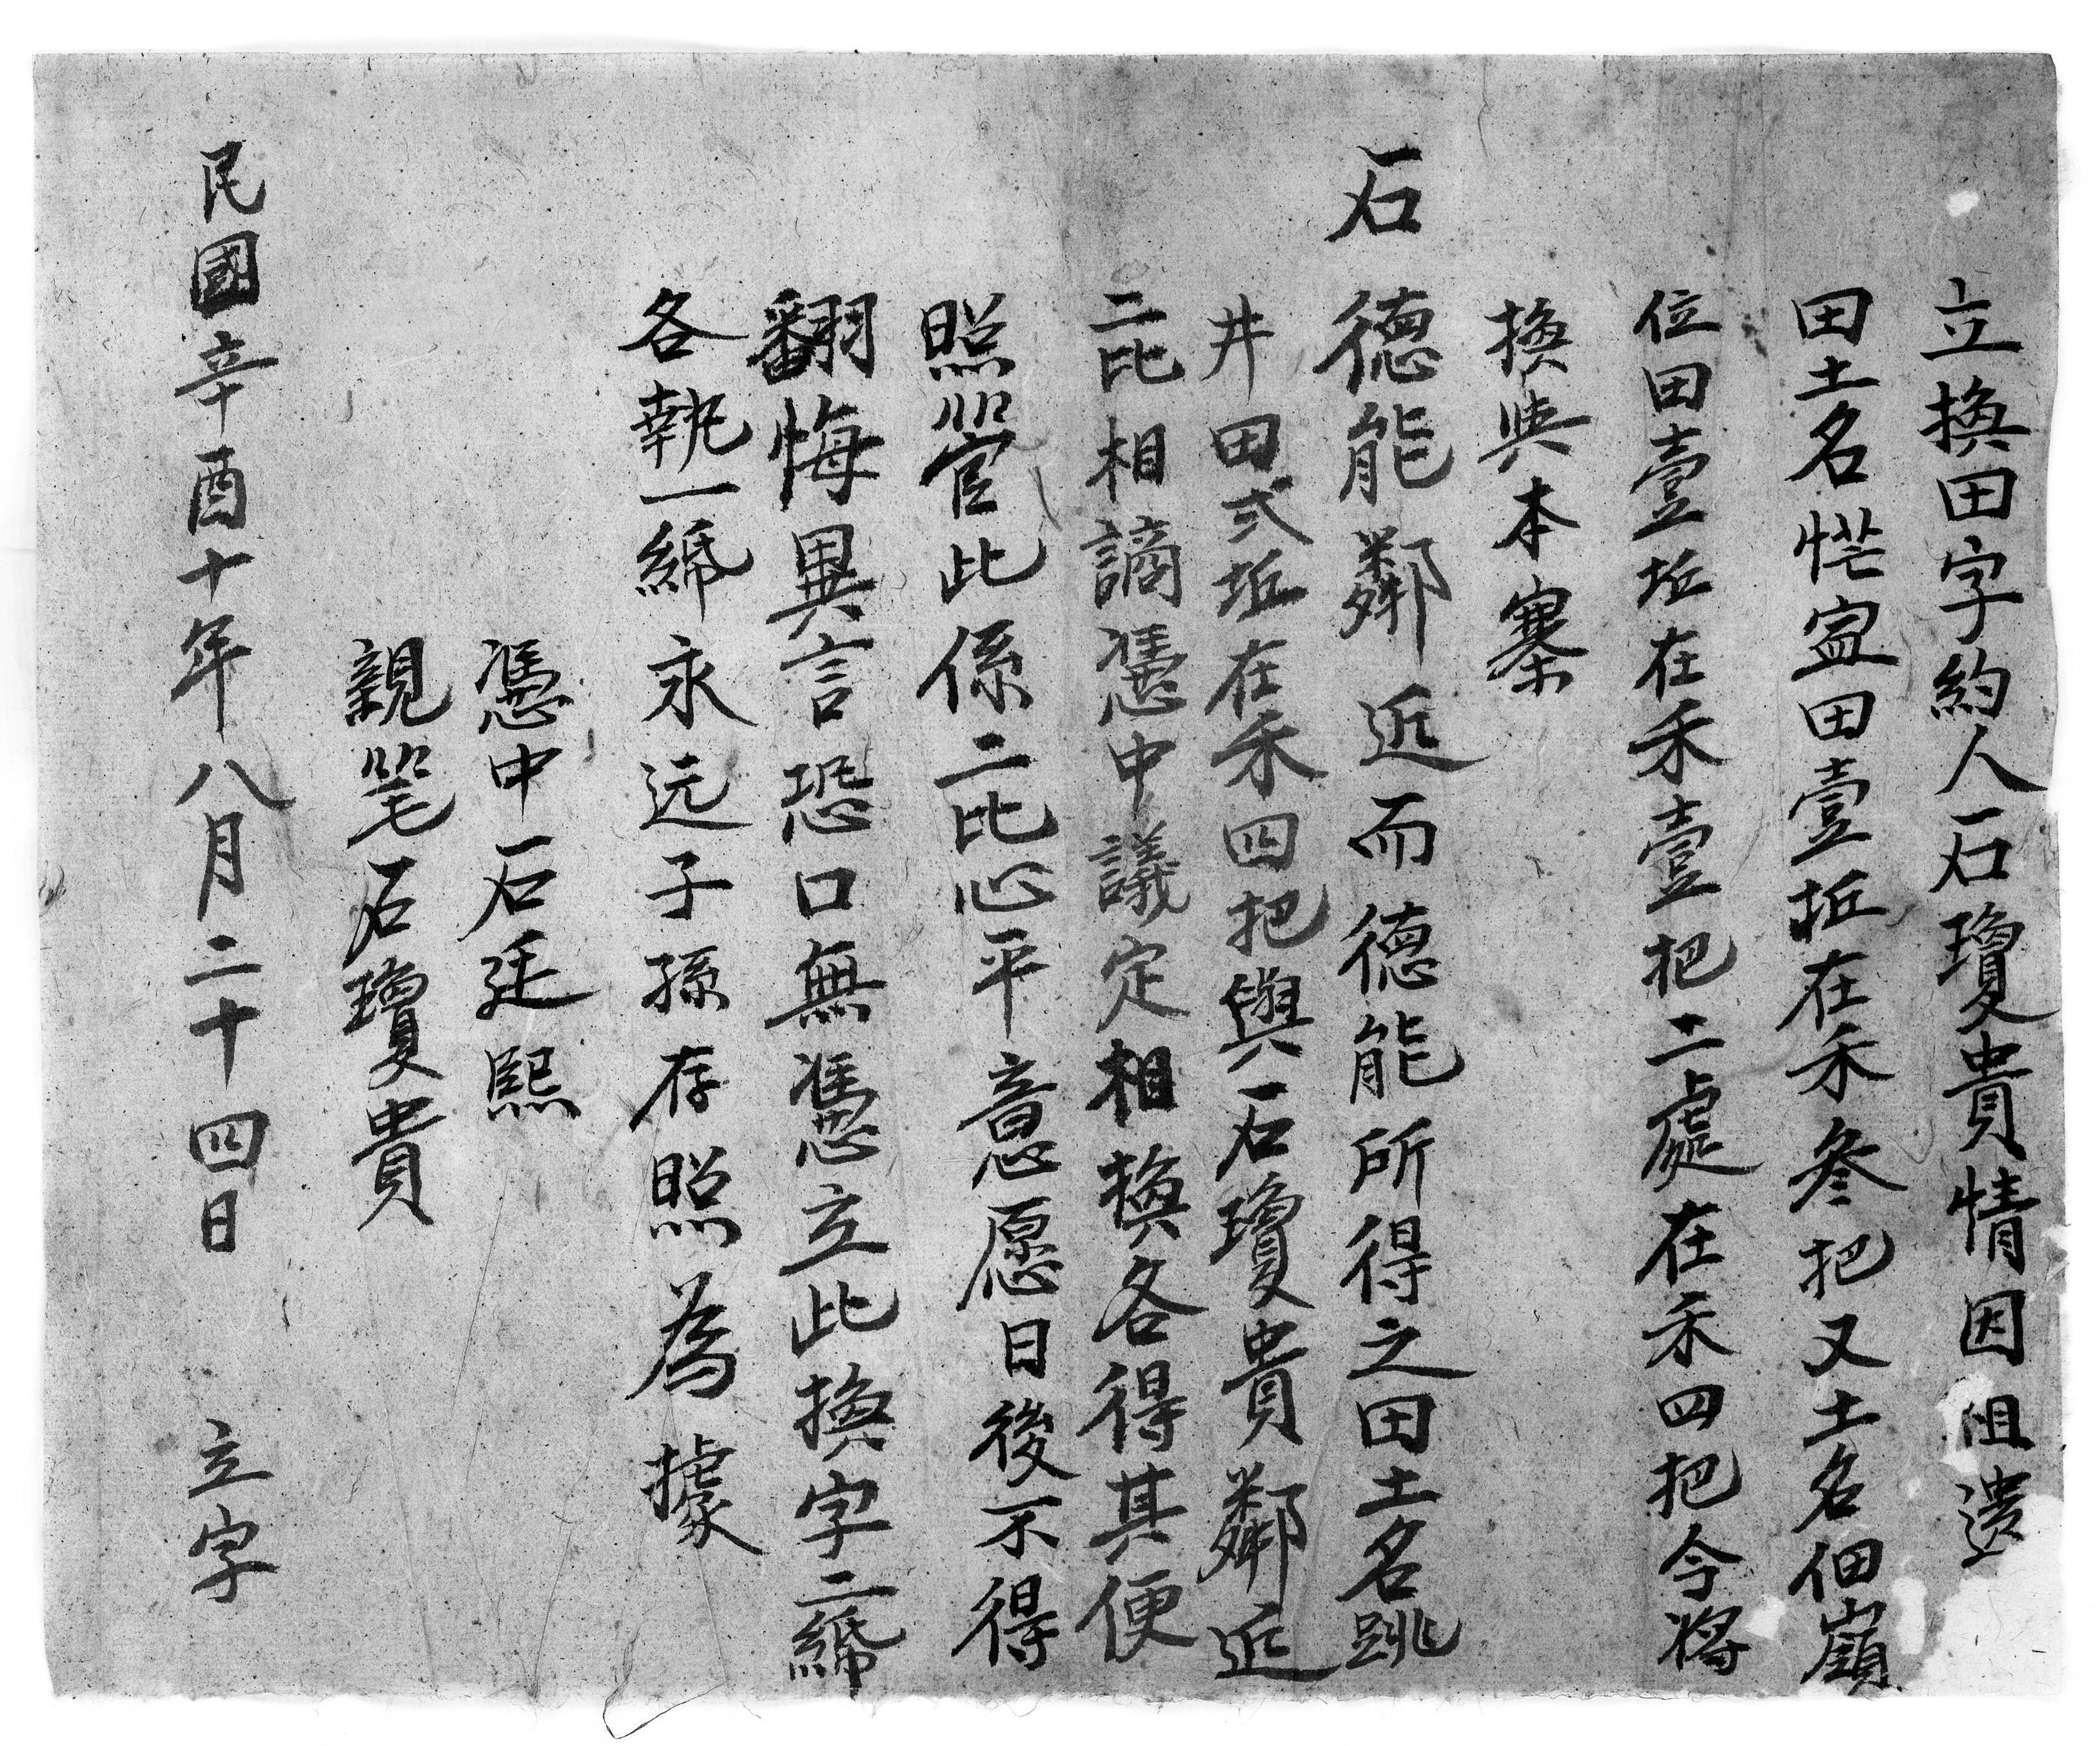 立換田字約人石瓊貴情因祖遗
田土名恾寍田壹坵在禾叁把又土名佃嶺
位田壹坵在禾壹把二處在禾四把今將
換與本寨
石德能鄰近而德能所得之田土名跳
井田弍坵在禾四把與石瓊貴鄰近
二比相謫憑中議定相換各得其便
照管此係二比心平意愿日後不得
翻悔異言恐口無憑立此換字二綿
各執一綿永远子孫存照為據
憑中石廷熙
親笔石瓊貴
民國辛酉十年八月二十四日 立字